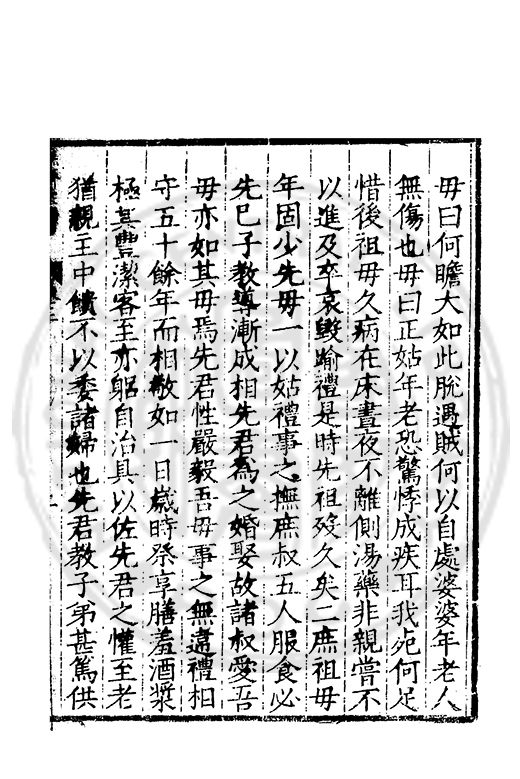 毋曰何瞻大如此脫遇賊何以自處婆婆年老人
無傷也毋曰正姑年老恐驚悸成疾耳我死何足
惜後祖毋久病在床晝夜不離側湯藥非親嘗不
以進及卒哀毀踰禮是時先祖歿久矣二庶祖毋
年固少先毋一以姑禮事之撫庶叔五人服食必
先巳子教導漸成相先君為之婚娶故諸叔愛吾
毋亦如其毋焉先君性嚴毅吾毋事之無違禮相
守五十餘年而相敬如一日歲時祭享膳羞酒漿
極其豐潔客至亦躬自治具以佐先君之懽至老
猶親主中饋不以委諸婦也先君教子弟甚篤供